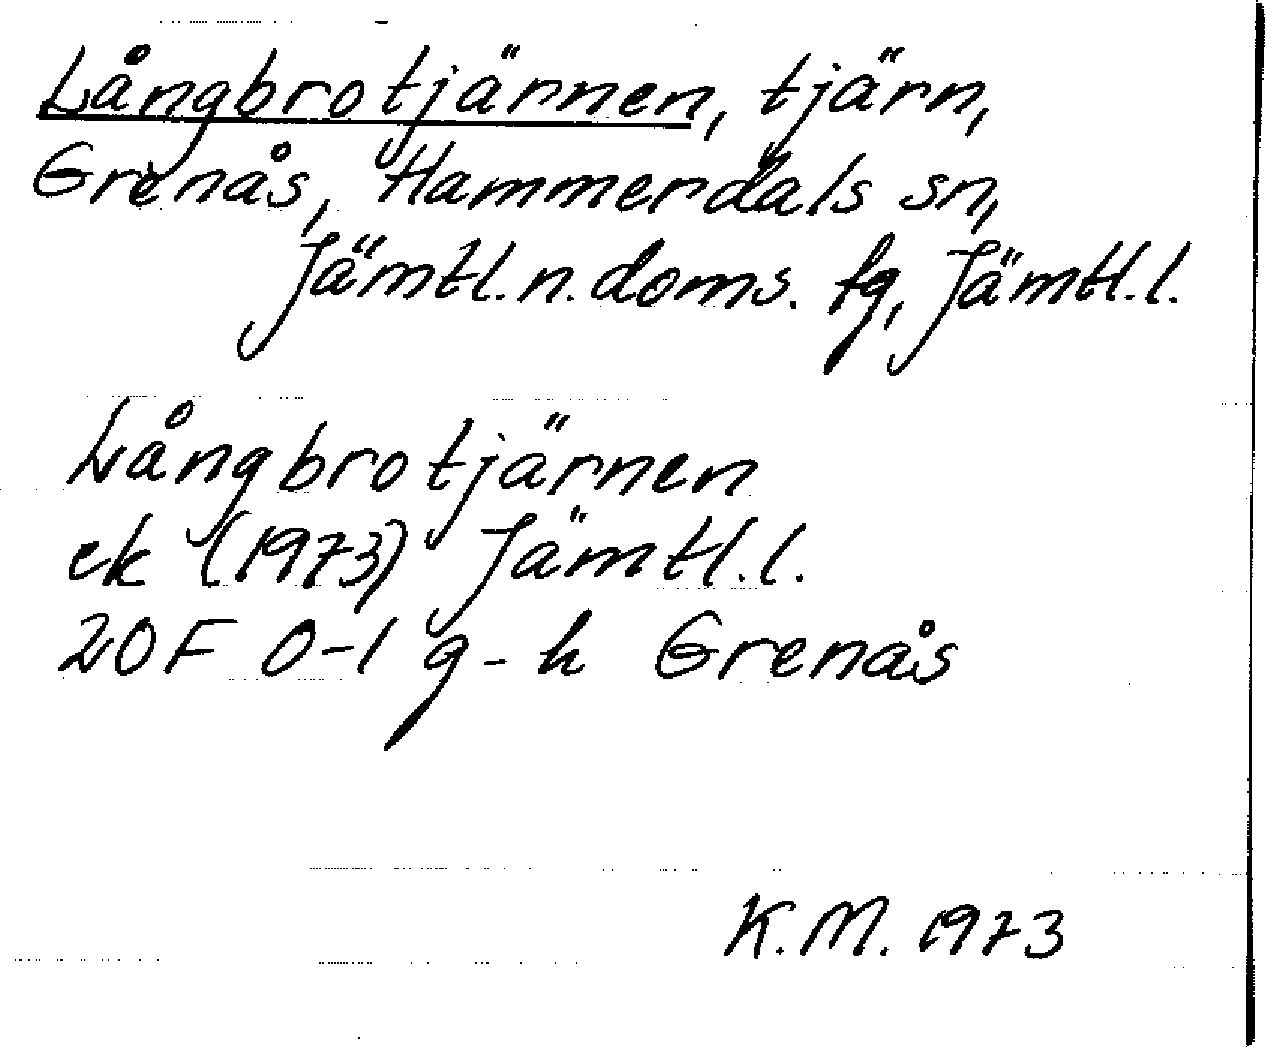 Långbrotjärnen, tjärn,
Grenås, Hammerdals sn,
Jämtl.n.doms. fg, Jämtl.l.
Långbrotjärnen
ek (1973) Jämtl.l.
20F 0-1 g-h Grenås
K.M. 1973